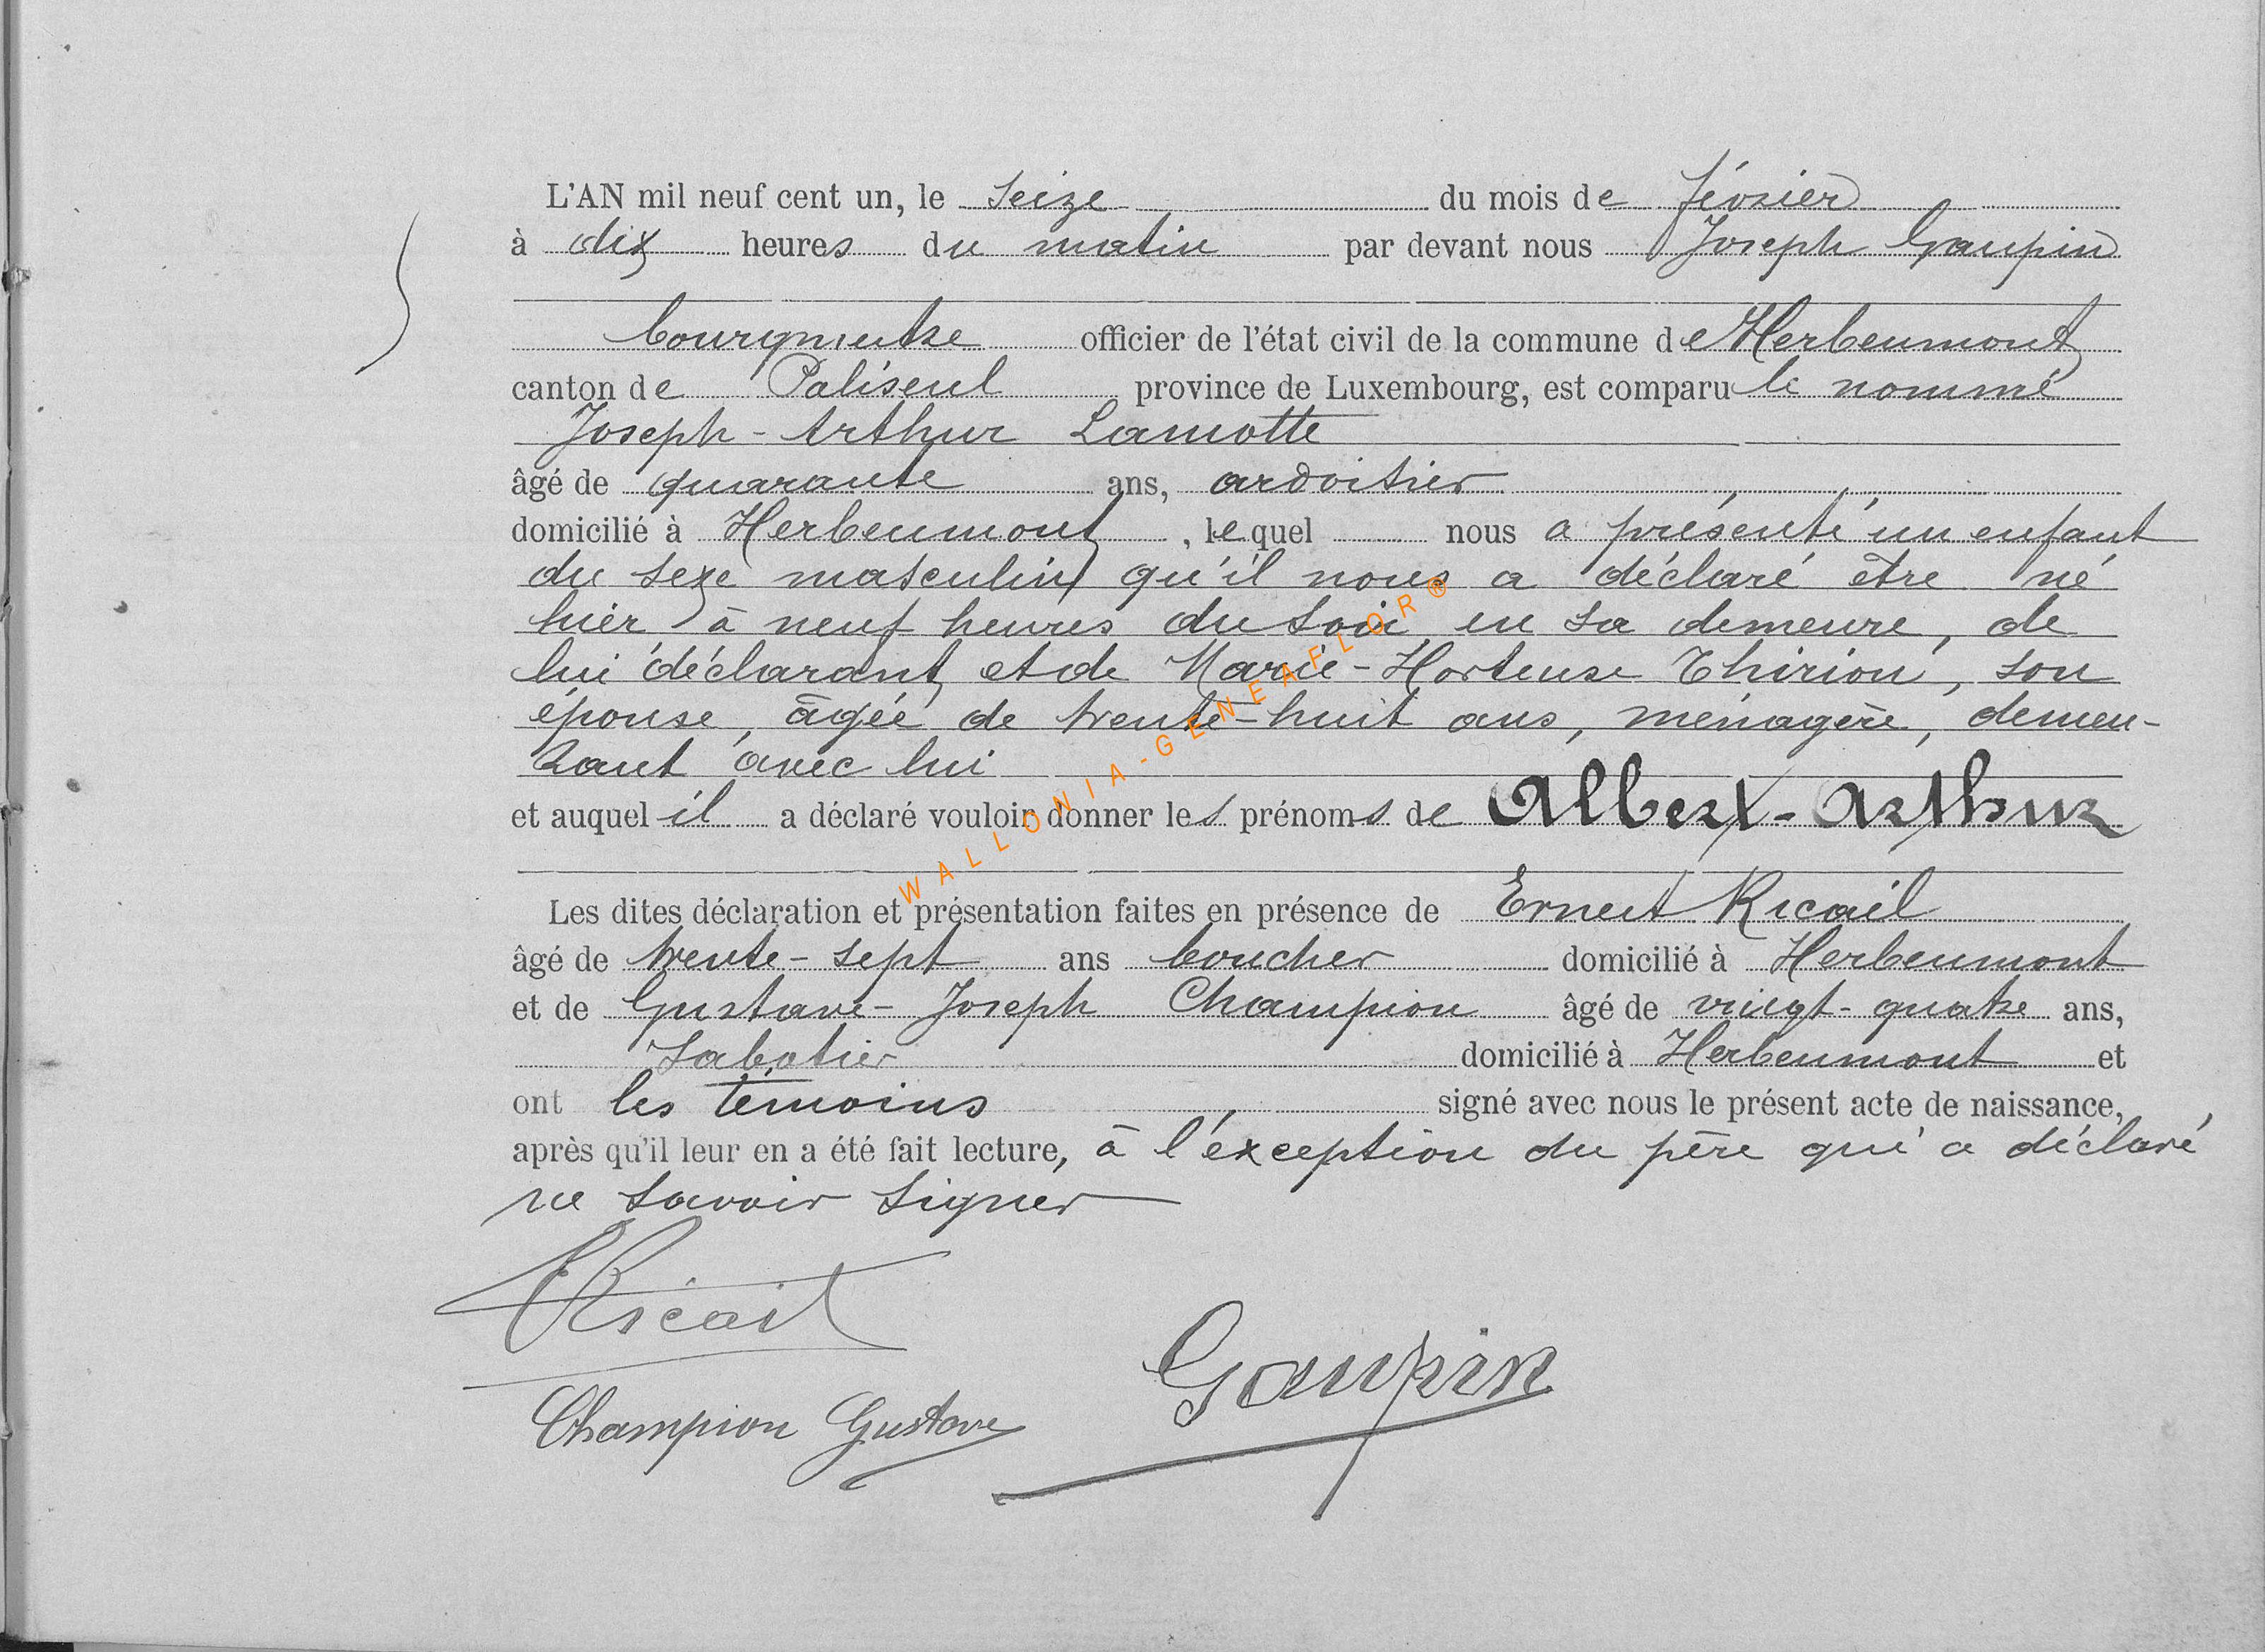 L'AN mil neuf cent un, le seize du mois de février
à dix heures du matin par devant nous Joseph Gaupin
bourgmestre officier de l'état civil de la commune de Herbeumont
canton de Paliseul province de Luxembourg, est comparu le nommé
Joseph-Arthur Lamotte
âgé de quarante ans, ardoisier
domicilié à Herbeumont, lequel nous a présenté un enfant
du sexe masculin qu'il nous a déclaré être né
hier à neuf heures du soir en sa demeure, de
lui déclarant et de Marie-Hortense Thirion, son
épouse, âgée de trente-huit ans, ménagère, demeu-
rant avec lui
et auquel il a déclaré vouloir donner les prénoms de Albert-Arthur
Les dites déclaration et présentation faites en présence de Ernest Ricail
âgé de trente-sept ans boucher domicilié à Herbeumont
et de Gustave-Joseph Champion âgé de vingt-quatre ans,
Sabotier domicilié à Herbeumont et
ont les témoins signé avec nous le présent acte de naissance,
après qu'il leur en a été fait lecture, à l'exception du père qui a déclaré
ne savoir signer
ERicail
Gaupin
Champion Gustave
WALLONIA-GENEAFLOR®